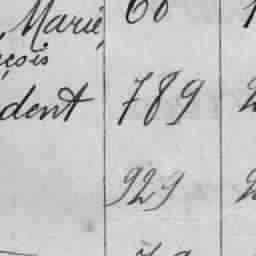 Marie 60
çois
dent 789
929